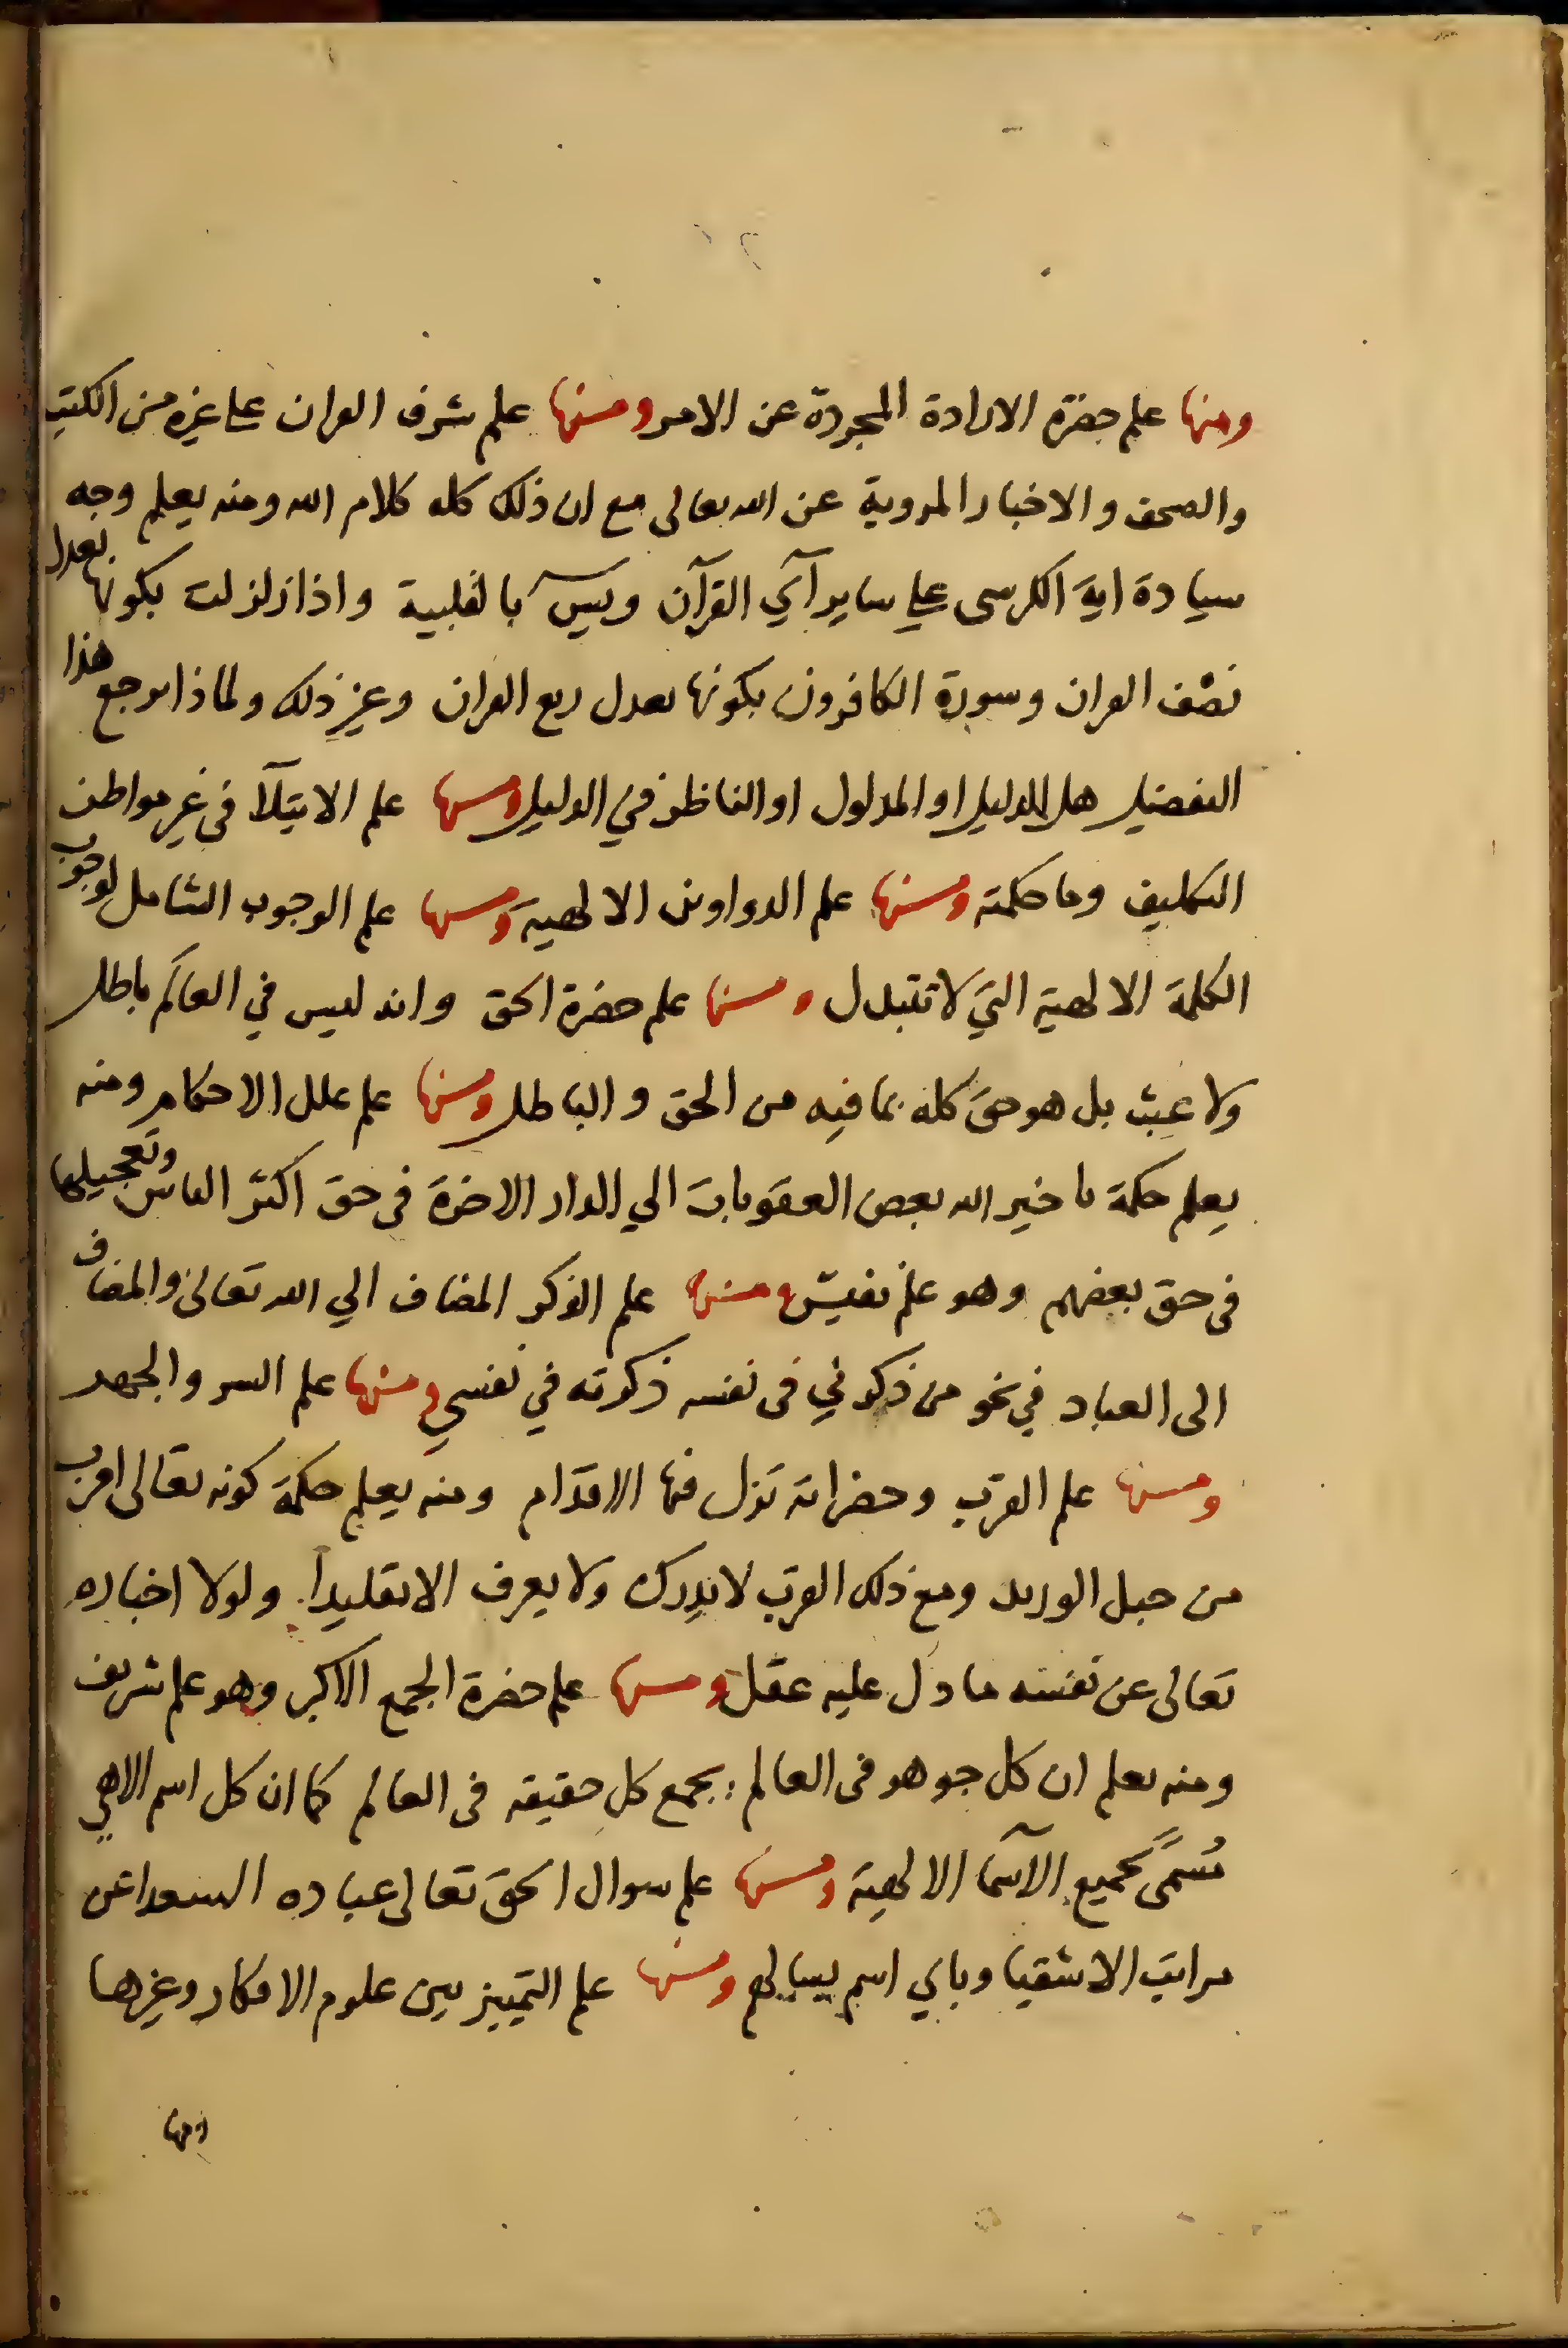 ومنها علم حضرة الارادة المجردة عن الامر ومنها علم شرف القران على غيره من الكتب
والصحف والاخبار المروية عن الله تعالى مع ان ذلك كله كلام الله ومنه يعلم وجه
سيادة اية الكرسي على ساير آي القرآن ويس بالقلبية واذا زلزلت بكونها تعدل
نصف القران وسورة الكافرون بكونها تعدل ربع القران وغير ذلك ولماذا يرجع هذا
التفضيل هل للدليل او المدلول او الناظر في الدليل ومنها علم الابتلآ في غير مواطن
التكليف وما حكمته ومنها علم الدواوين الالهية ومنها علم الوجوب الشامل لوجوب
الكلمة الالهية التي لا تتبدل ومنها علم حضرة الحق وانه ليس في العالم باطل
ولا عبث بل هو حق كله بما فيه من الحق والباطل ومنها علم علل الاحكام ومنه
يعلم حكمة تاخير الله بعض العقوبات الي الدار الاخرة في حق اكثر الناس وتعجيلها
في حق بعضهم وهو علم نفيس ومنها علم الذكر المضاف الي الله تعالى والمضاف
الى العباد في نحو من ذكرني في نفسه ذكرته في نفسي ومنها علم السر والجهر
ومنها علم القرب وحضراته تزل فيها الاقدام ومنه يعلم حكمة كونه تعالى اقرب
من حبل الوريد ومع ذلك القرب لا يدرك ولا يعرف الا تقليدا ولولا اخباره
تعالى عن نفسه ما دل عليه عقل ومنها علم حضرة الجمع الاكبر وهو علم شريف
ومنه يعلم ان كل جوهر في العالم يجمع كل حقيقة في العالم كما ان كل اسم الاهي
مُسَمًّى بجميع الآسما الالهية ومنها علم سوال الحق تعالى عباده السعدا عن
مراتب الاشقيا وباي اسم يسالهم ومنها علم التمييز بين علوم الافكار وغيرها
ومنها